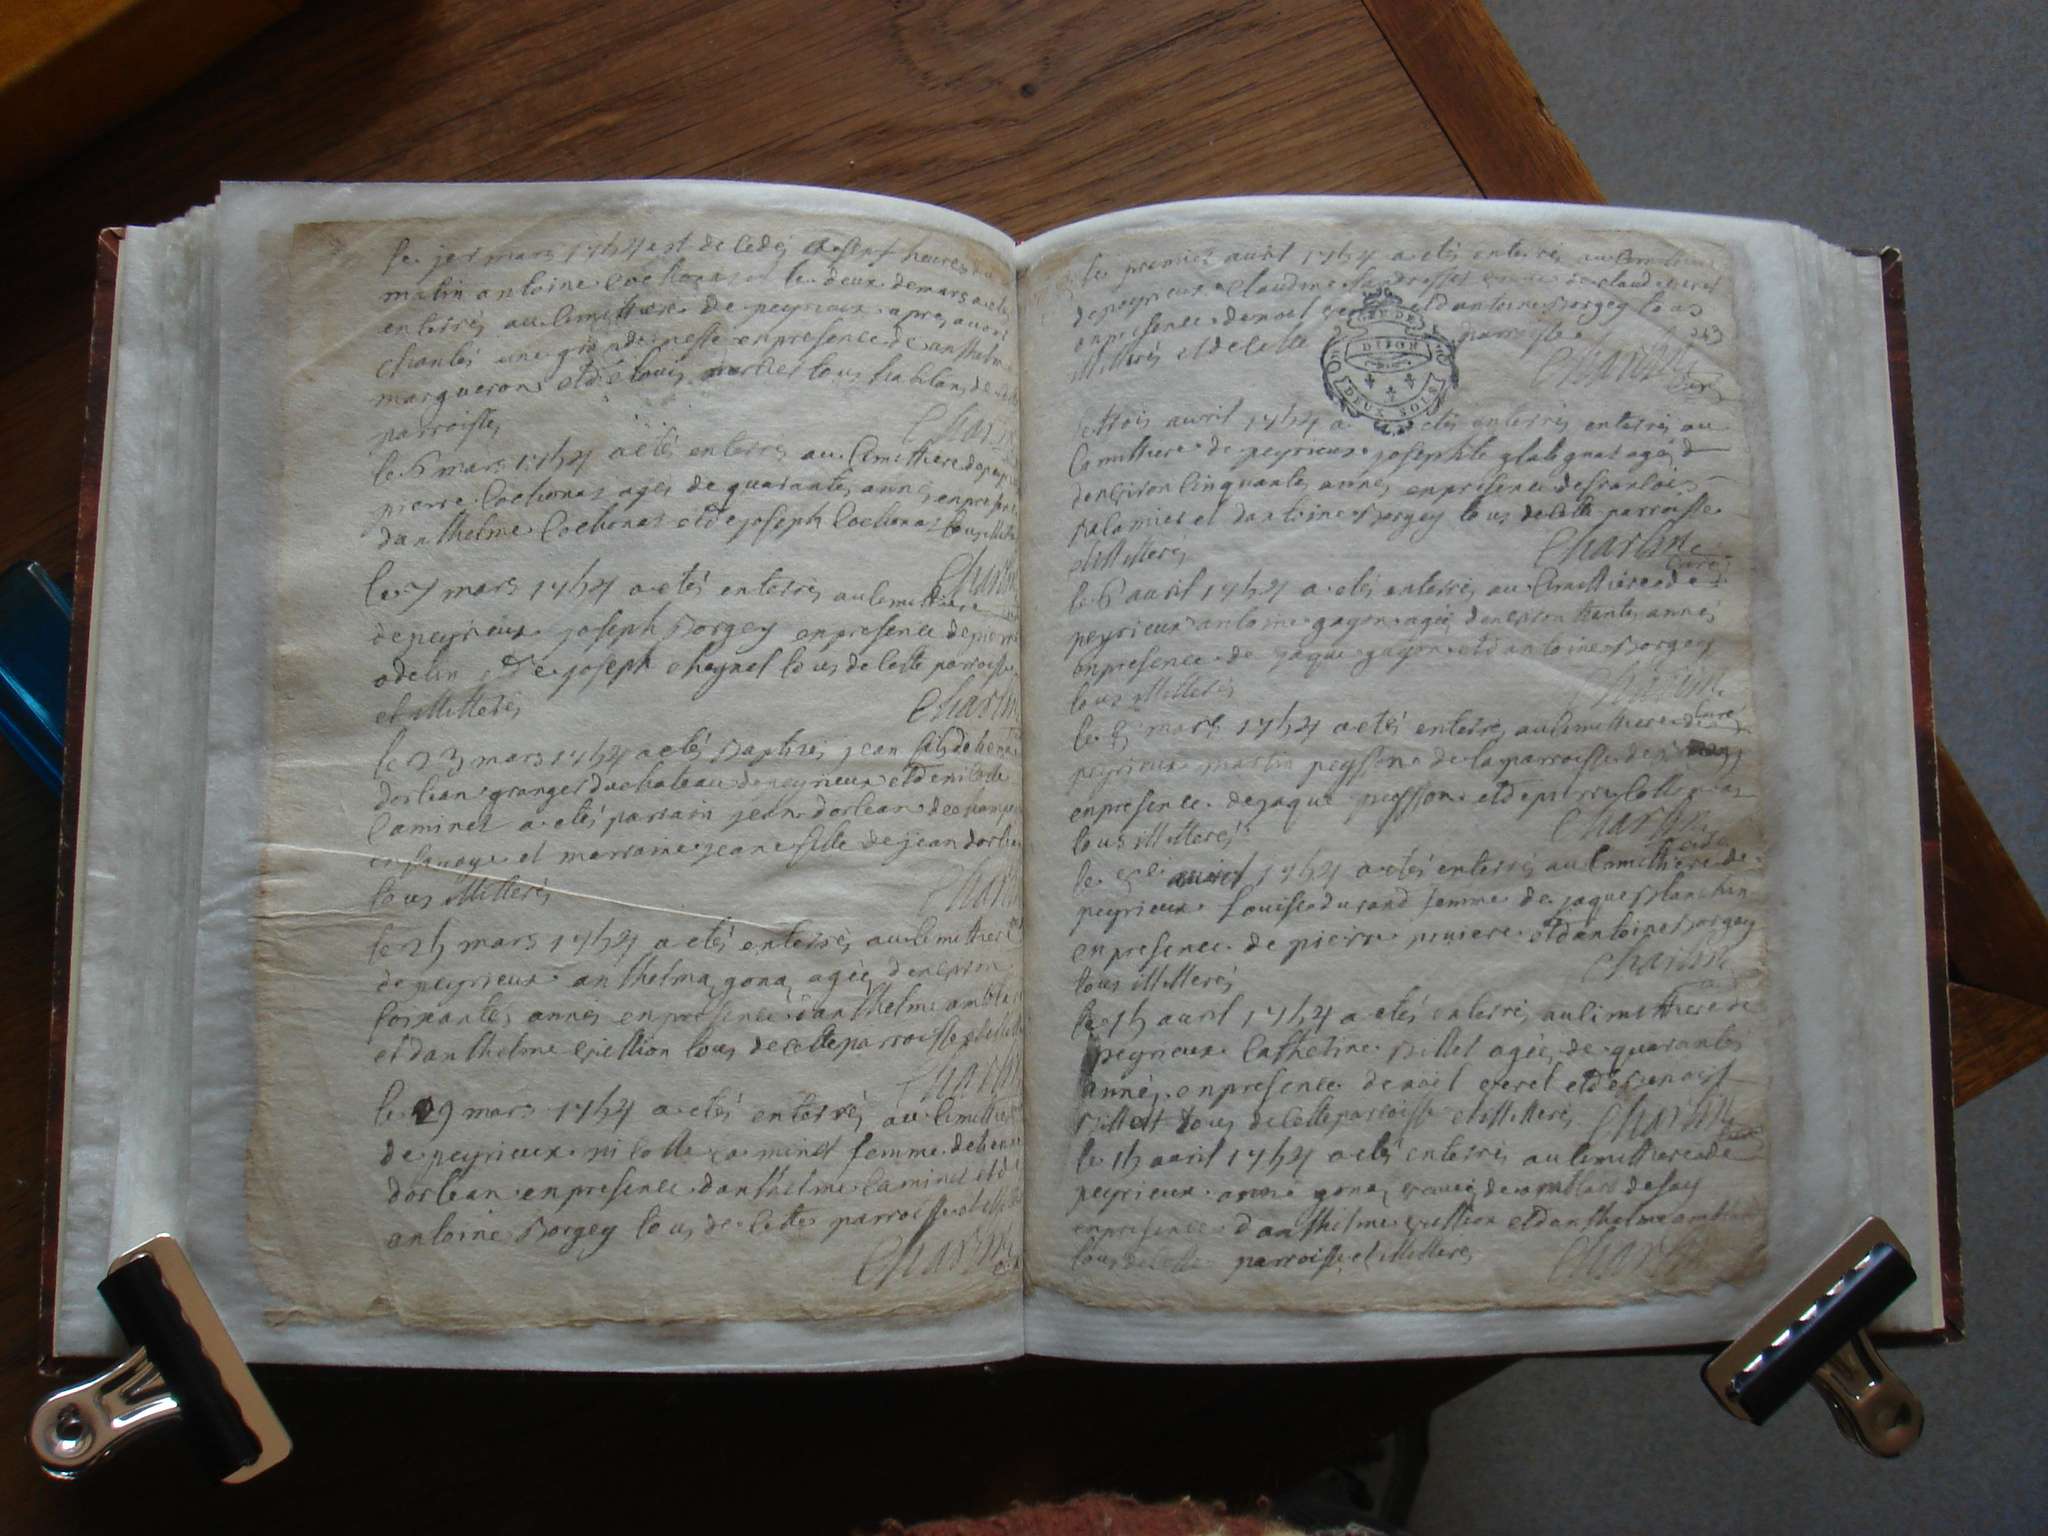 le 1er mars 1754 est decedé a sept heures du
matin antoine Cochonat et le deux de mars a etés
enterrés au Cimittiere de peyrieux apres avoir
chantés une grande messe en presence de anthelme
margueron et de louis tous habitans de
parroisse,
Charlin
le 6 mars 1754 a etés enterrés au Cimittiere de peyrieux
pierre Cochonat agés de quarantes annés en presence
danthelme Cochonat et de joseph Cochonat tous
Charlin
le 7 mars 1754 a etés enterrés au Cimittiere
de peyrieux joseph Borgey en presence de pierre
odelin et de joseph cheynel tous de cette parroisse
et illiterés
Charlin
le 23 mars 1754 a etés Baptisés jean fils de benoi
dorlean granger du chateau de peyrieux et de nicolle
Caminet a etés parrain jean dorlean de
en savoye et marraine jeane fille de jean dorlean
tous illiterés
Charlin
le 25 mars 1754 a etés enterrés au Cimittiere
de peyrieux anthelma gona, agée, denviron
soixantes annés en presence danthelme amblard
et danthelme vittion tous de cette parroisse
Charlin
le 29 mars 1754 a etés enterrés au Cimittiere
de peyrieux nicolle Caminet femme de benoi
dorlean en presence danthelme Caminet et d
antoine Borgey tous de cette parroisse
Charlin
le premier avril 1754 a etés enterrés au Cimittiere
de peyrieux Claudine de claude veret
en presence de noel veret et dantoine Borgey tous
illiterés et de cette parroisse.
GEN. DE
DIJON
DEUX SOLS
243
Charlin
Curé
le trois avril 1754 a etés enterrés enterrés au
Cimittiere de peyrieux josephte glabgnat agés d
denviron Cinquantes annés en presence de francois
palamier et dantoine Borgey tous de cette parroisse
et illiterés
Charlin
Curé
le 6 avril 1754 a etés enterrés au Cimittiere de
peyrieux antoine gayon agés denviron trentes annés
en presence de jaque gayon et dantoine Borgey
tous illiterés
Charlin
Curé
le 5 mars 1754 a etés enterrés au Cimittiere de
peyrieux martin peysson de la parroisse de
en presence de jaque peysson et de pierre
tous illiterés
Charlin
le avril 1754 a etés enterrés au Cimittiere de
peyrieux Louise durand femme de jaque Blanchin
en presence de pierre et dantoine Borgey
tous illiterés
Charlin
le 15 avril 1754 a etés enterrés au Cimittiere de
peyrieux Catherine Billet agée, de quarantes
annés, en presence de noel veret et de benoist
Billet tous de cette parroisse et illiterés
Charlin
le 15 avril 1754 a etés enterrés au Cimittiere de
peyrieux anne gona, veuve, de amblard
en presence danthelme vittion et danthelme amblard
tous de cette parroisse et illiterés
Charlin